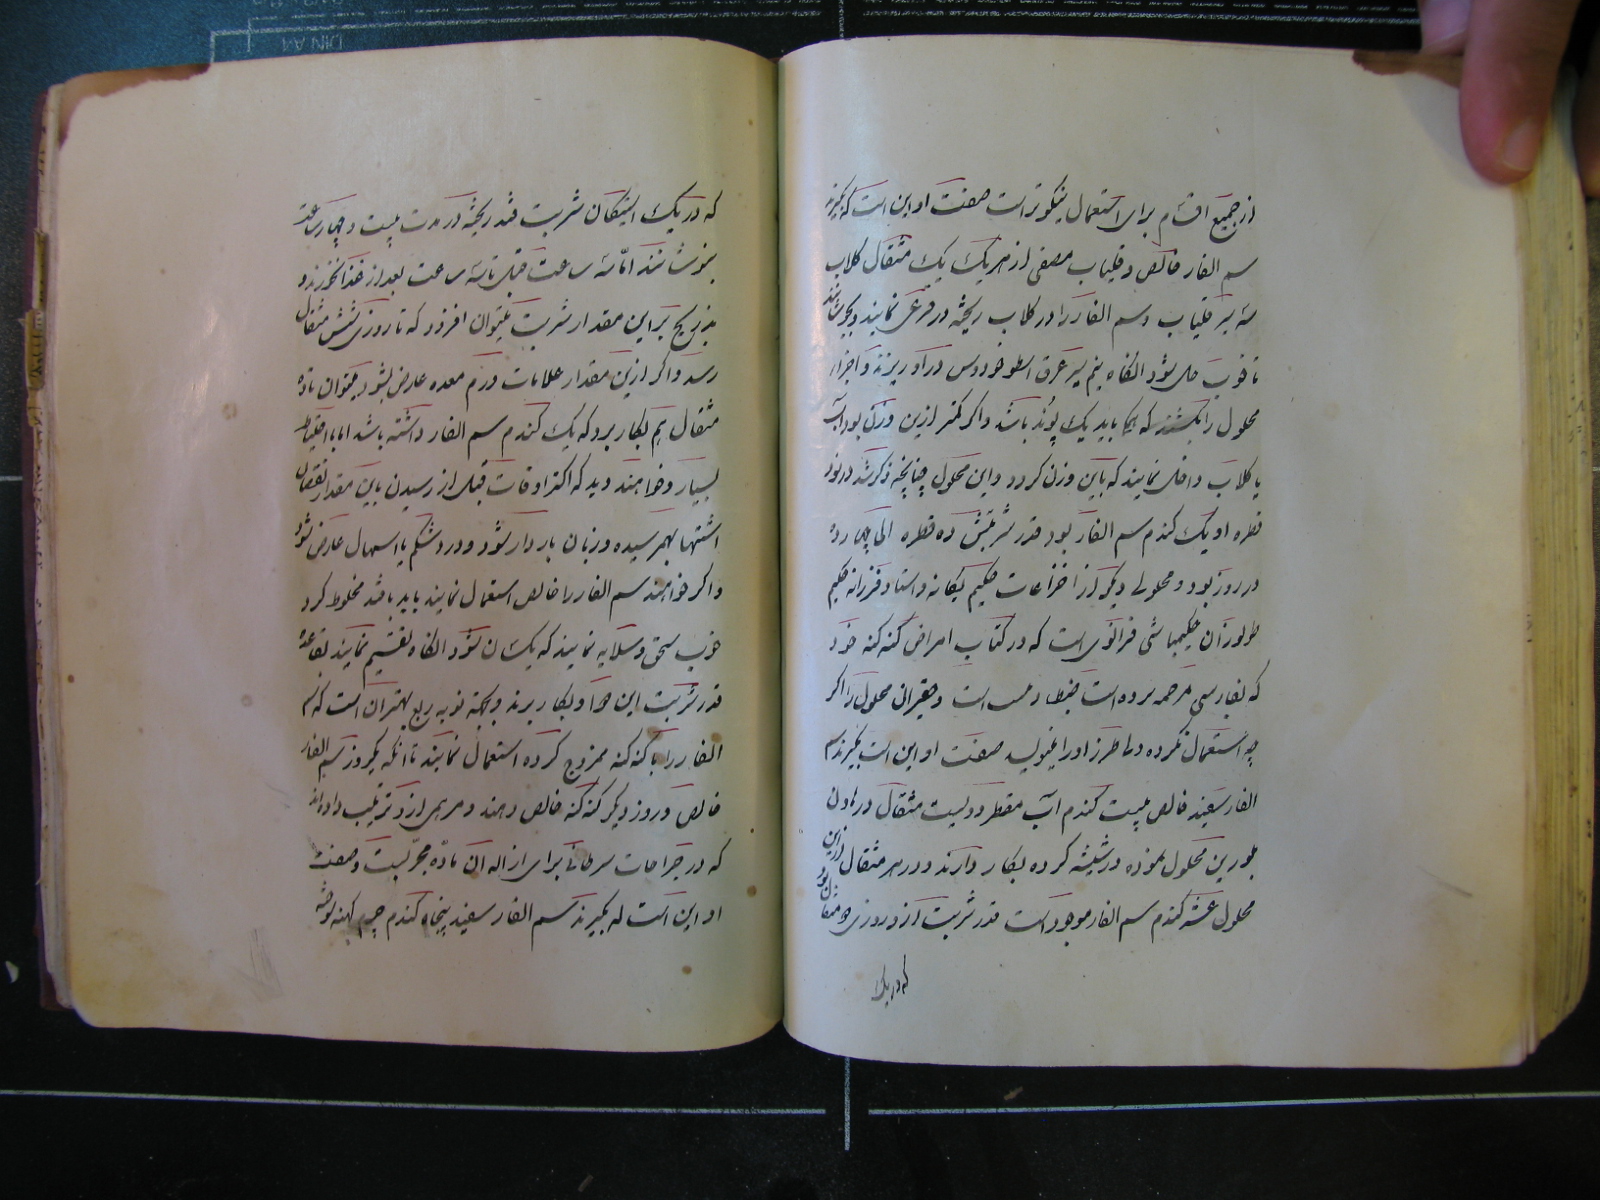 از جمیع اقسام برای استعمال نیکوتر است صفت او این است که بگیرند
سم الفار خالص و قلیاب مصفی از هر یک یک مثقال کلاب
سه سیر قلیاب و سم الفار را در کلاب ریخته در قرعی نمایند و بجوشانند
تا خوب حل شود انگاه نیم سیر عرق اسطوخودوس در او ریزند و اجزاء
محلول را بکشند که باید یک پوند باشد و اگر کمتر ازین وزن بود آب
یا کلاب داخل نمایند که باین وزن گردد و این محلول چنانچه ذکر شد در نود
قطره او یک کندم سم الفار بود قدر شربتش ده قطره الی چهارده
در روز بود و محلولی دیگر از اختراعات حکیم یگانه و استاد فرزانه حکیم
طولوزان حکیمباشی فرانسوی است که در کتاب امراض کنه کنه خود
که بفارسی ترجمه برده است ضبط است و حقیر این محلول را اگر
چه استعمال نکرده ولی طرز او را مینویسد صفت او این است بگیرند سم
الفار سفید خالص بیست کندم آب مقطر دویست مثقال در هاون
بلورین محلول نموده در شیشه کرده بکار دارند و در هر مثقال ازین
محلول عشر کندم سم الفار موجود است قدر شربت از او روزی دو مثقال بود
که در یک
که در یک استکان شربت قند ریخته در مدت بیست و چهار ساعت
بنوشانند امّا سه ساعت قبل تا سه ساعت بعد از غذا نخورند و
بتدریج بر این مقدار شربت میتوان افزود که تا روزی شش مثقال
رسد و اگر ازین مقدار علامات ورم معده عارض نشود میتوان تا ده
مثقال هم بکار برد که یک کندم سم الفار داشته باشد اما با احتیاط
بسیار و خواهند دید که اکثر اوقات قبل از رسیدن باین مقدار نقصان
اشتها بهمرسیده و زبان باردار شود و درد شکم یا اسهال عارض شود
و اگر خواهند سم الفار را خالص استعمال نمایند باید با قند مخلوط کرد
خوب سحق و سلایه نمایند که یکسان شود انگاه تقسیم نمایند بقاعده
قدر شربت این دوا و بکار برند و بجهة نوبه ربع بهتر آن است که سم
الفار را با کنه کنه ممزوج کرده استعمال نمایند تا آنکه یکروز سم الفار
خالص و روز دیگر کنه کنه خالص دهند و مرهمی از او ترتیب داده‌اند
که در جراحات سرطانی برای ازاله آن ماده مجرّبست و صفت
او این است که بگیرند سم الفار سفید پنجاه کندم چرم کهنه سوخته